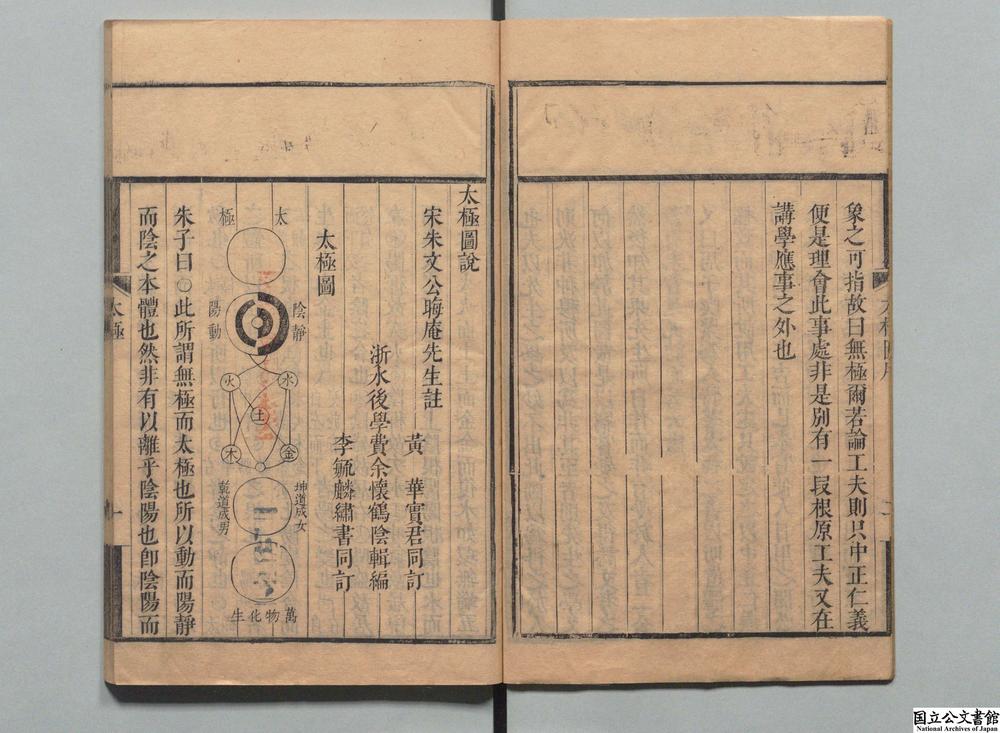 象之可指故曰無極爾若論工夫則只中正仁義
便是理會此事處非是別有一段根原工夫又在
講學應事之外也
太極圖說
宋朱文公晦庵先生註
黃 華實君同訂
浙水後學費余懷鶴陰輯編
李毓麟繡書同訂
太極圖
太
極
陰靜
陽動
水
火
土
金
木
坤道成女
乾道成男
萬物化生
朱子曰○此所謂無極而太極也所以動而陽靜
而陰之本體也然非有以離乎陰陽也即陰陽而
太極
一
国立公文書館
National Archives of Japan